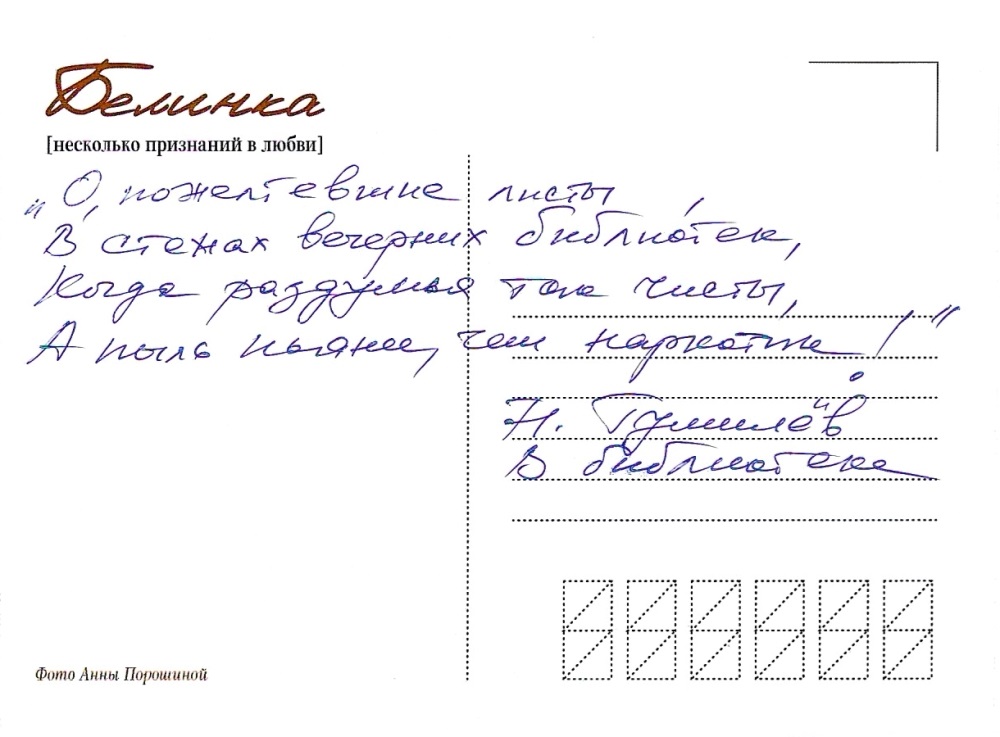 Белинка
[несколько признаний в любви]
„О, пожелтевшие листы,
В стенах вечерних библиотек,
Когда раздумья так чисты,
А пыль пьянее, чем наркотик!“
Н. Гумилёв
В библиотеке
Фото Анны Порошиной